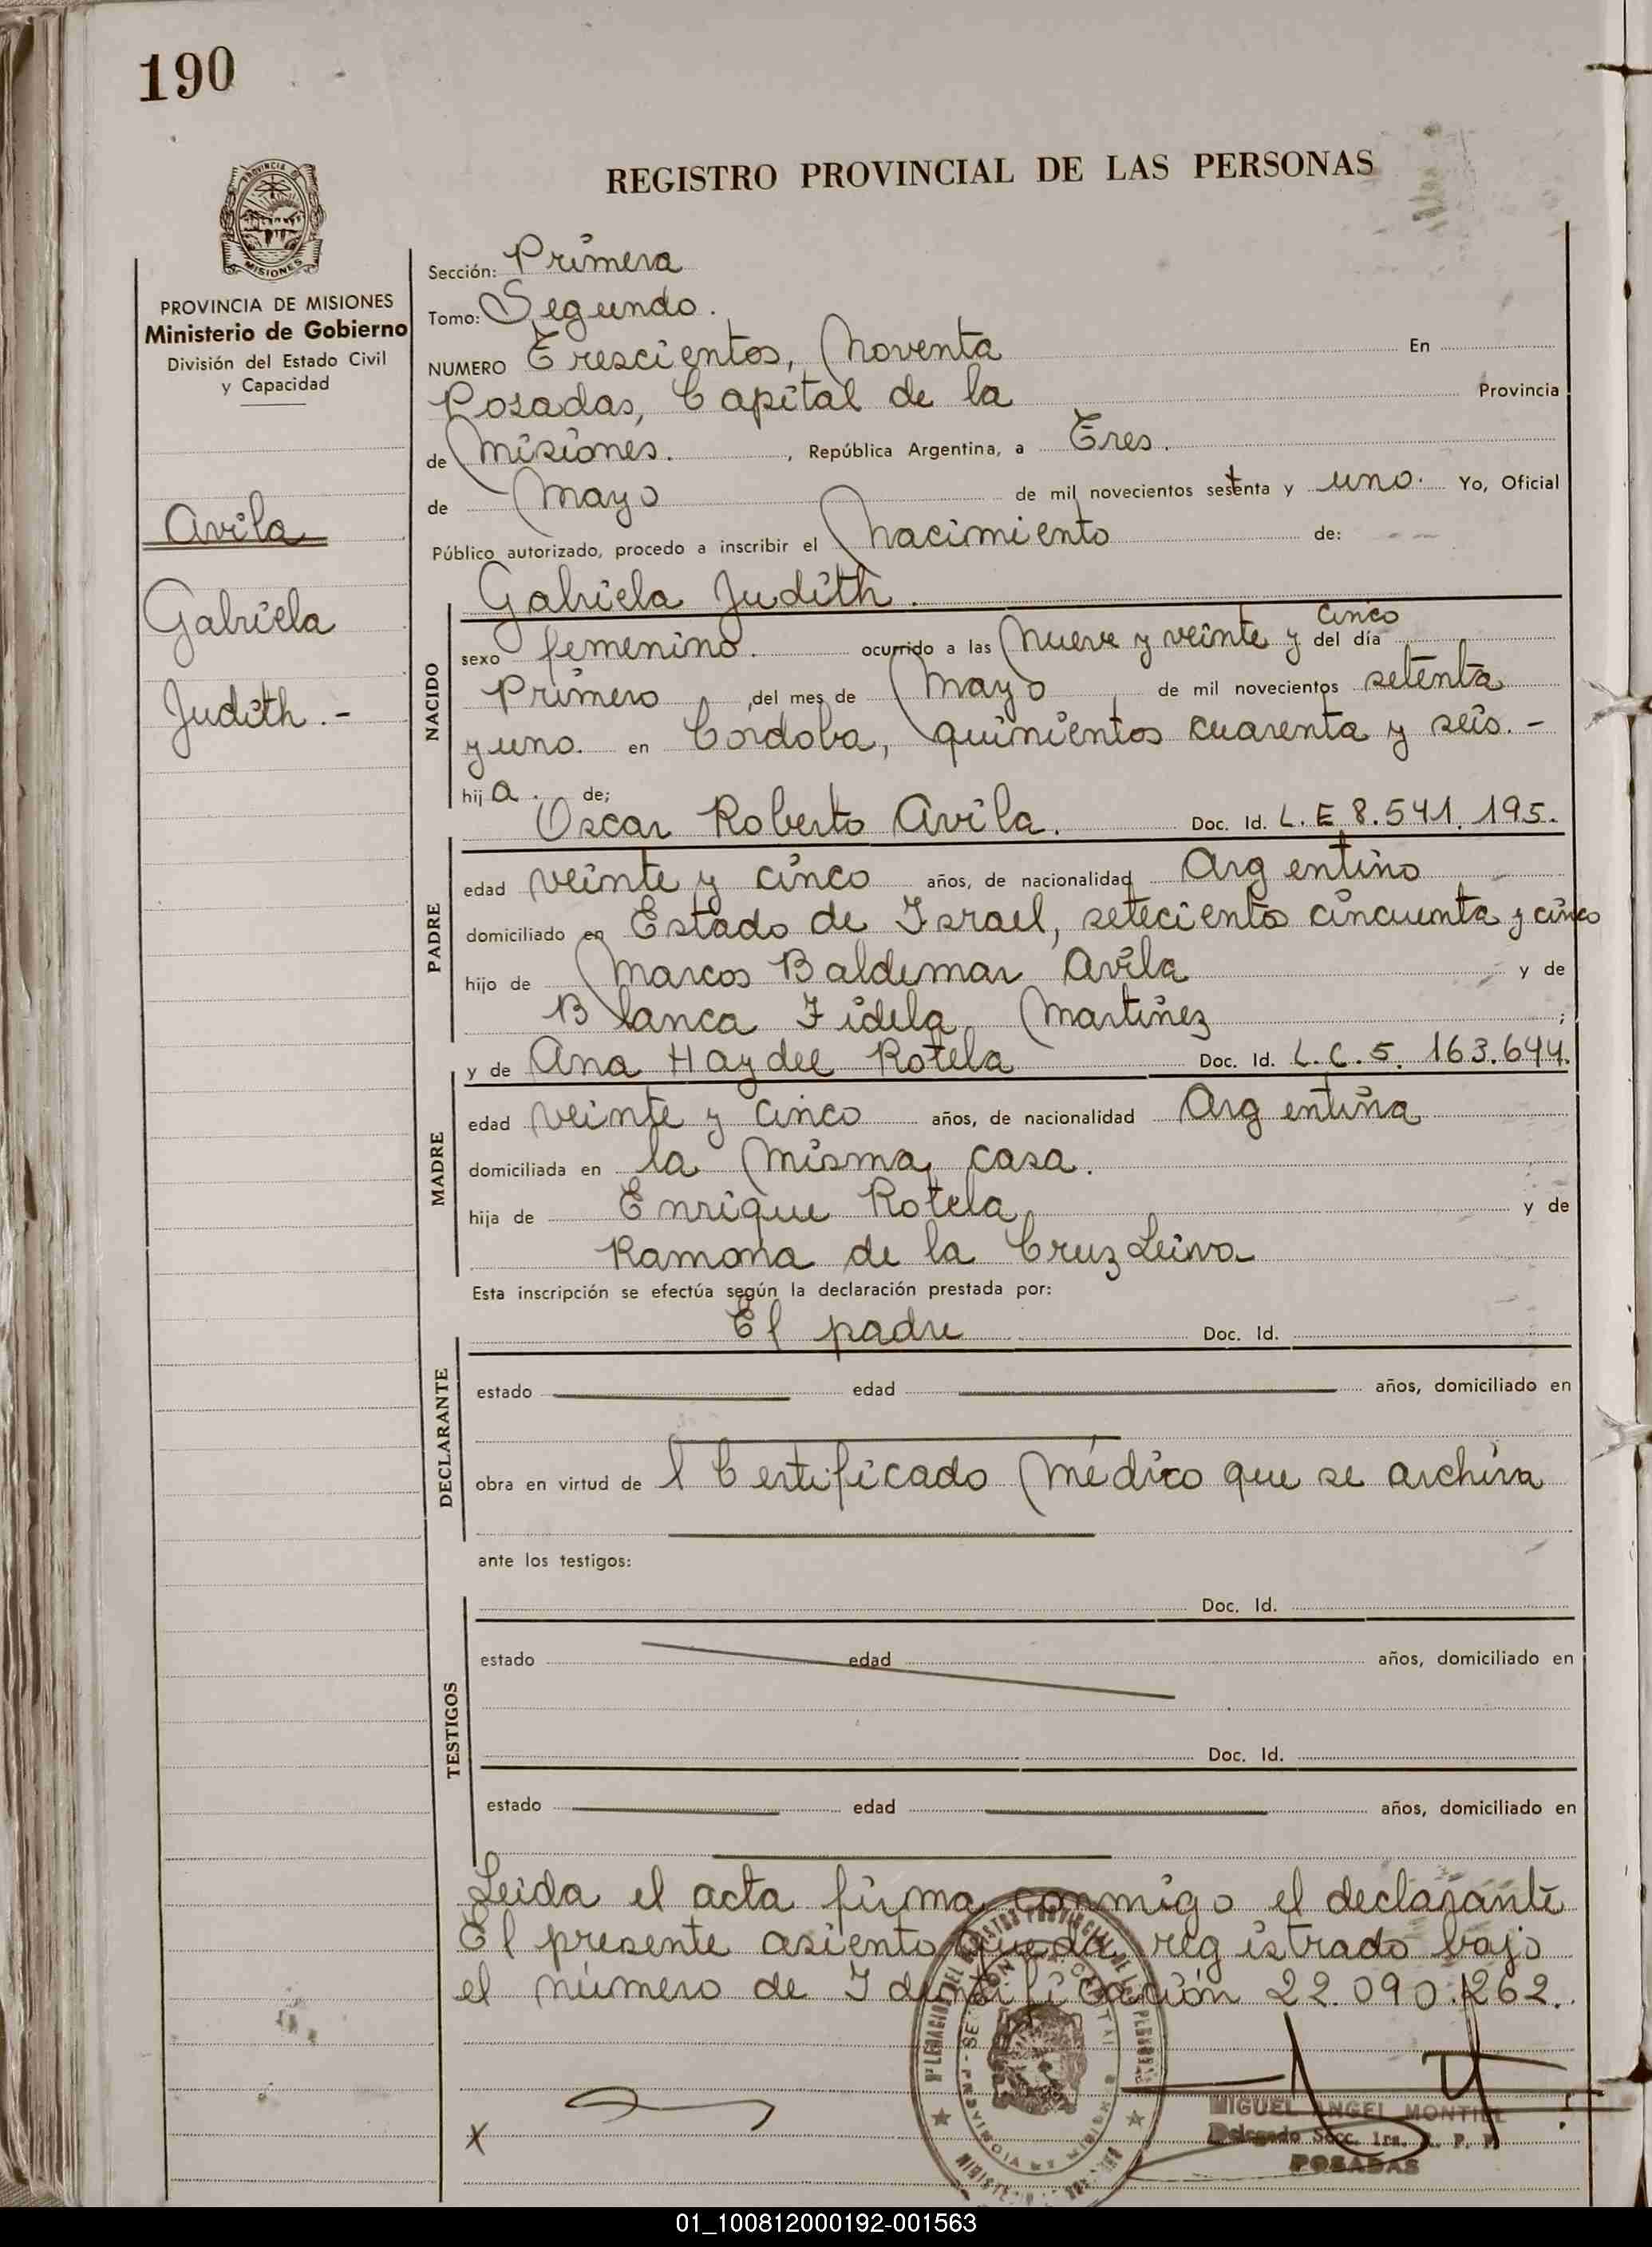 190
REGISTRO PROVINCIAL DE LAS PERSONAS
PROVINCIA DE
MISIONES
PROVINCIA DE MISIONES
Ministerio de Gobierno
División del Estado Civil
y Capacidad
Avila
Gabriela
Judith.-
Sección: Primera
Tomo: Segundo.
NUMERO Trescientos, Noventa En
Posadas, Capital de la Provincia
de Misiones. , República Argentina, a Tres.
de Mayo de mil novecientos setenta y uno. Yo, Oficial
Público autorizado, procedo a inscribir el Nacimiento de:
Gabriela Judith.
NACIDO
sexo femenino. ocurrido a las Nueve y veinte y cinco del día
Primero ,del mes de Mayo de mil novecientos setenta
y uno. en Cordoba, quinientos cuarenta y seis.-
hij a. de;
Oscar Roberto Avila. Doc. Id. L.E 8.541.195.
PADRE
edad veinte y cinco años, de nacionalidad Argentino
domiciliado en Estado de Israel, seteciento cincuenta y cinco
hijo de Marcos Baldemar Avila y de
Blanca Fidela Martinez ;
y de Ana Haydee Rotela Doc. Id. L.C.5.163.644.
MADRE
edad veinte y cinco años, de nacionalidad Argentina
domiciliada en la misma casa.
hija de Enrique Rotela y de
Ramona de la Cruz Leiva
Esta inscripción se efectúa según la declaración prestada por:
El padre Doc. Id.
DECLARANTE
estado edad años, domiciliado en
obra en virtud de l Certificado Médico que se archiva
ante los testigos:
Doc. Id.
TESTIGOS
estado edad años, domiciliado en
Doc. Id.
estado edad años, domiciliado en
Leida el acta firma conmigo el declarante
El presente asiento queda registrado bajo
el número de Identificación 22.090.262.
X
MIGUEL ANGEL MONTIEL
Delegado Secc. 1ra. R. P. P.
POSADAS
01_100812000192-001563